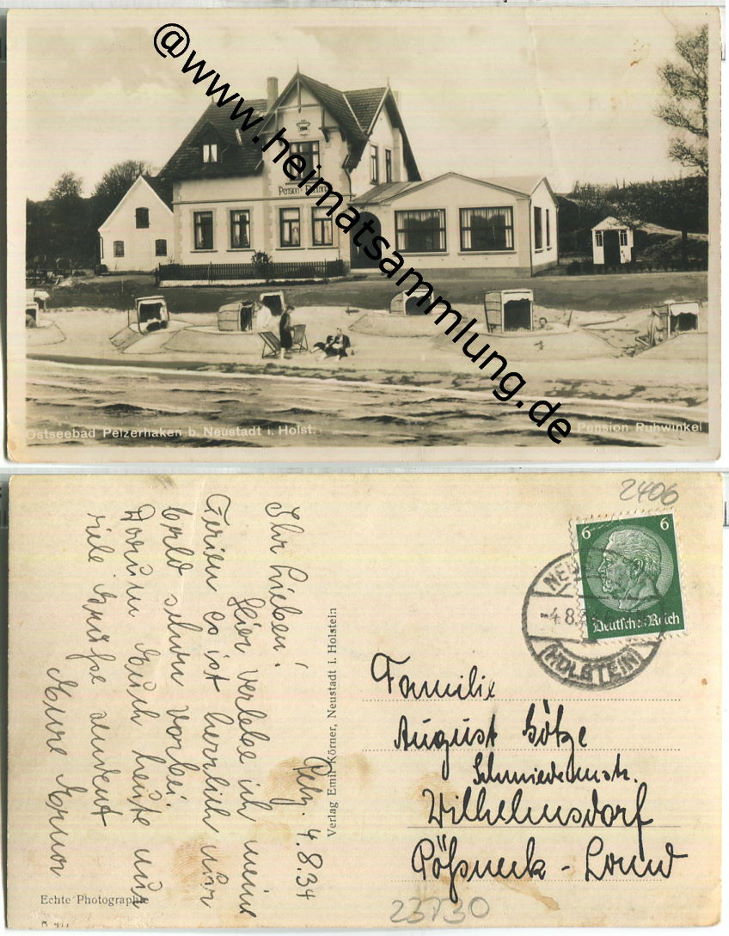 @www.heimatsammlung.de
Pension
Ostseebad Pelzerhaken b. Neustadt i. Holst.
Pension Ruhwinkel
2406
6 6
Deutsches Reich
-4.8.3
HOLSTEIN
Pelz. 4.8.34
Ihr Lieben!
Hier verlebe ich meine
Ferien es ist herrlich nur
bald schon vorbei.
Darum Euch heute nur
viele Grüße sendet
Eure Erna
Verlag Emil Körner, Neustadt i. Holstein
Familie
August Götze
Schmiedemstr.
Wilhelmsdorf
Pößneck - Land
23730
Echte Photographie